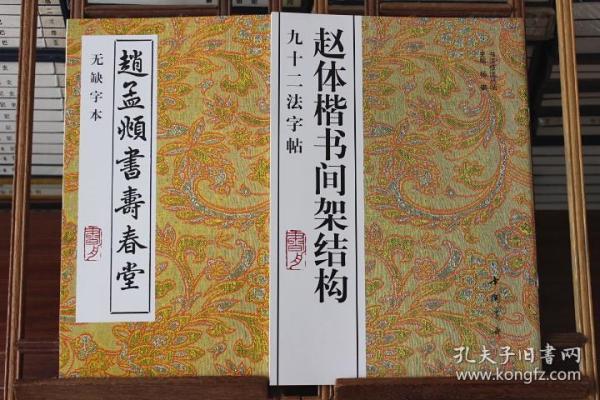 趙孟頫書壽春堂
无缺字本
赵体楷书间架结构
九十二法字帖
孔夫子旧书网
www.kongfz.com